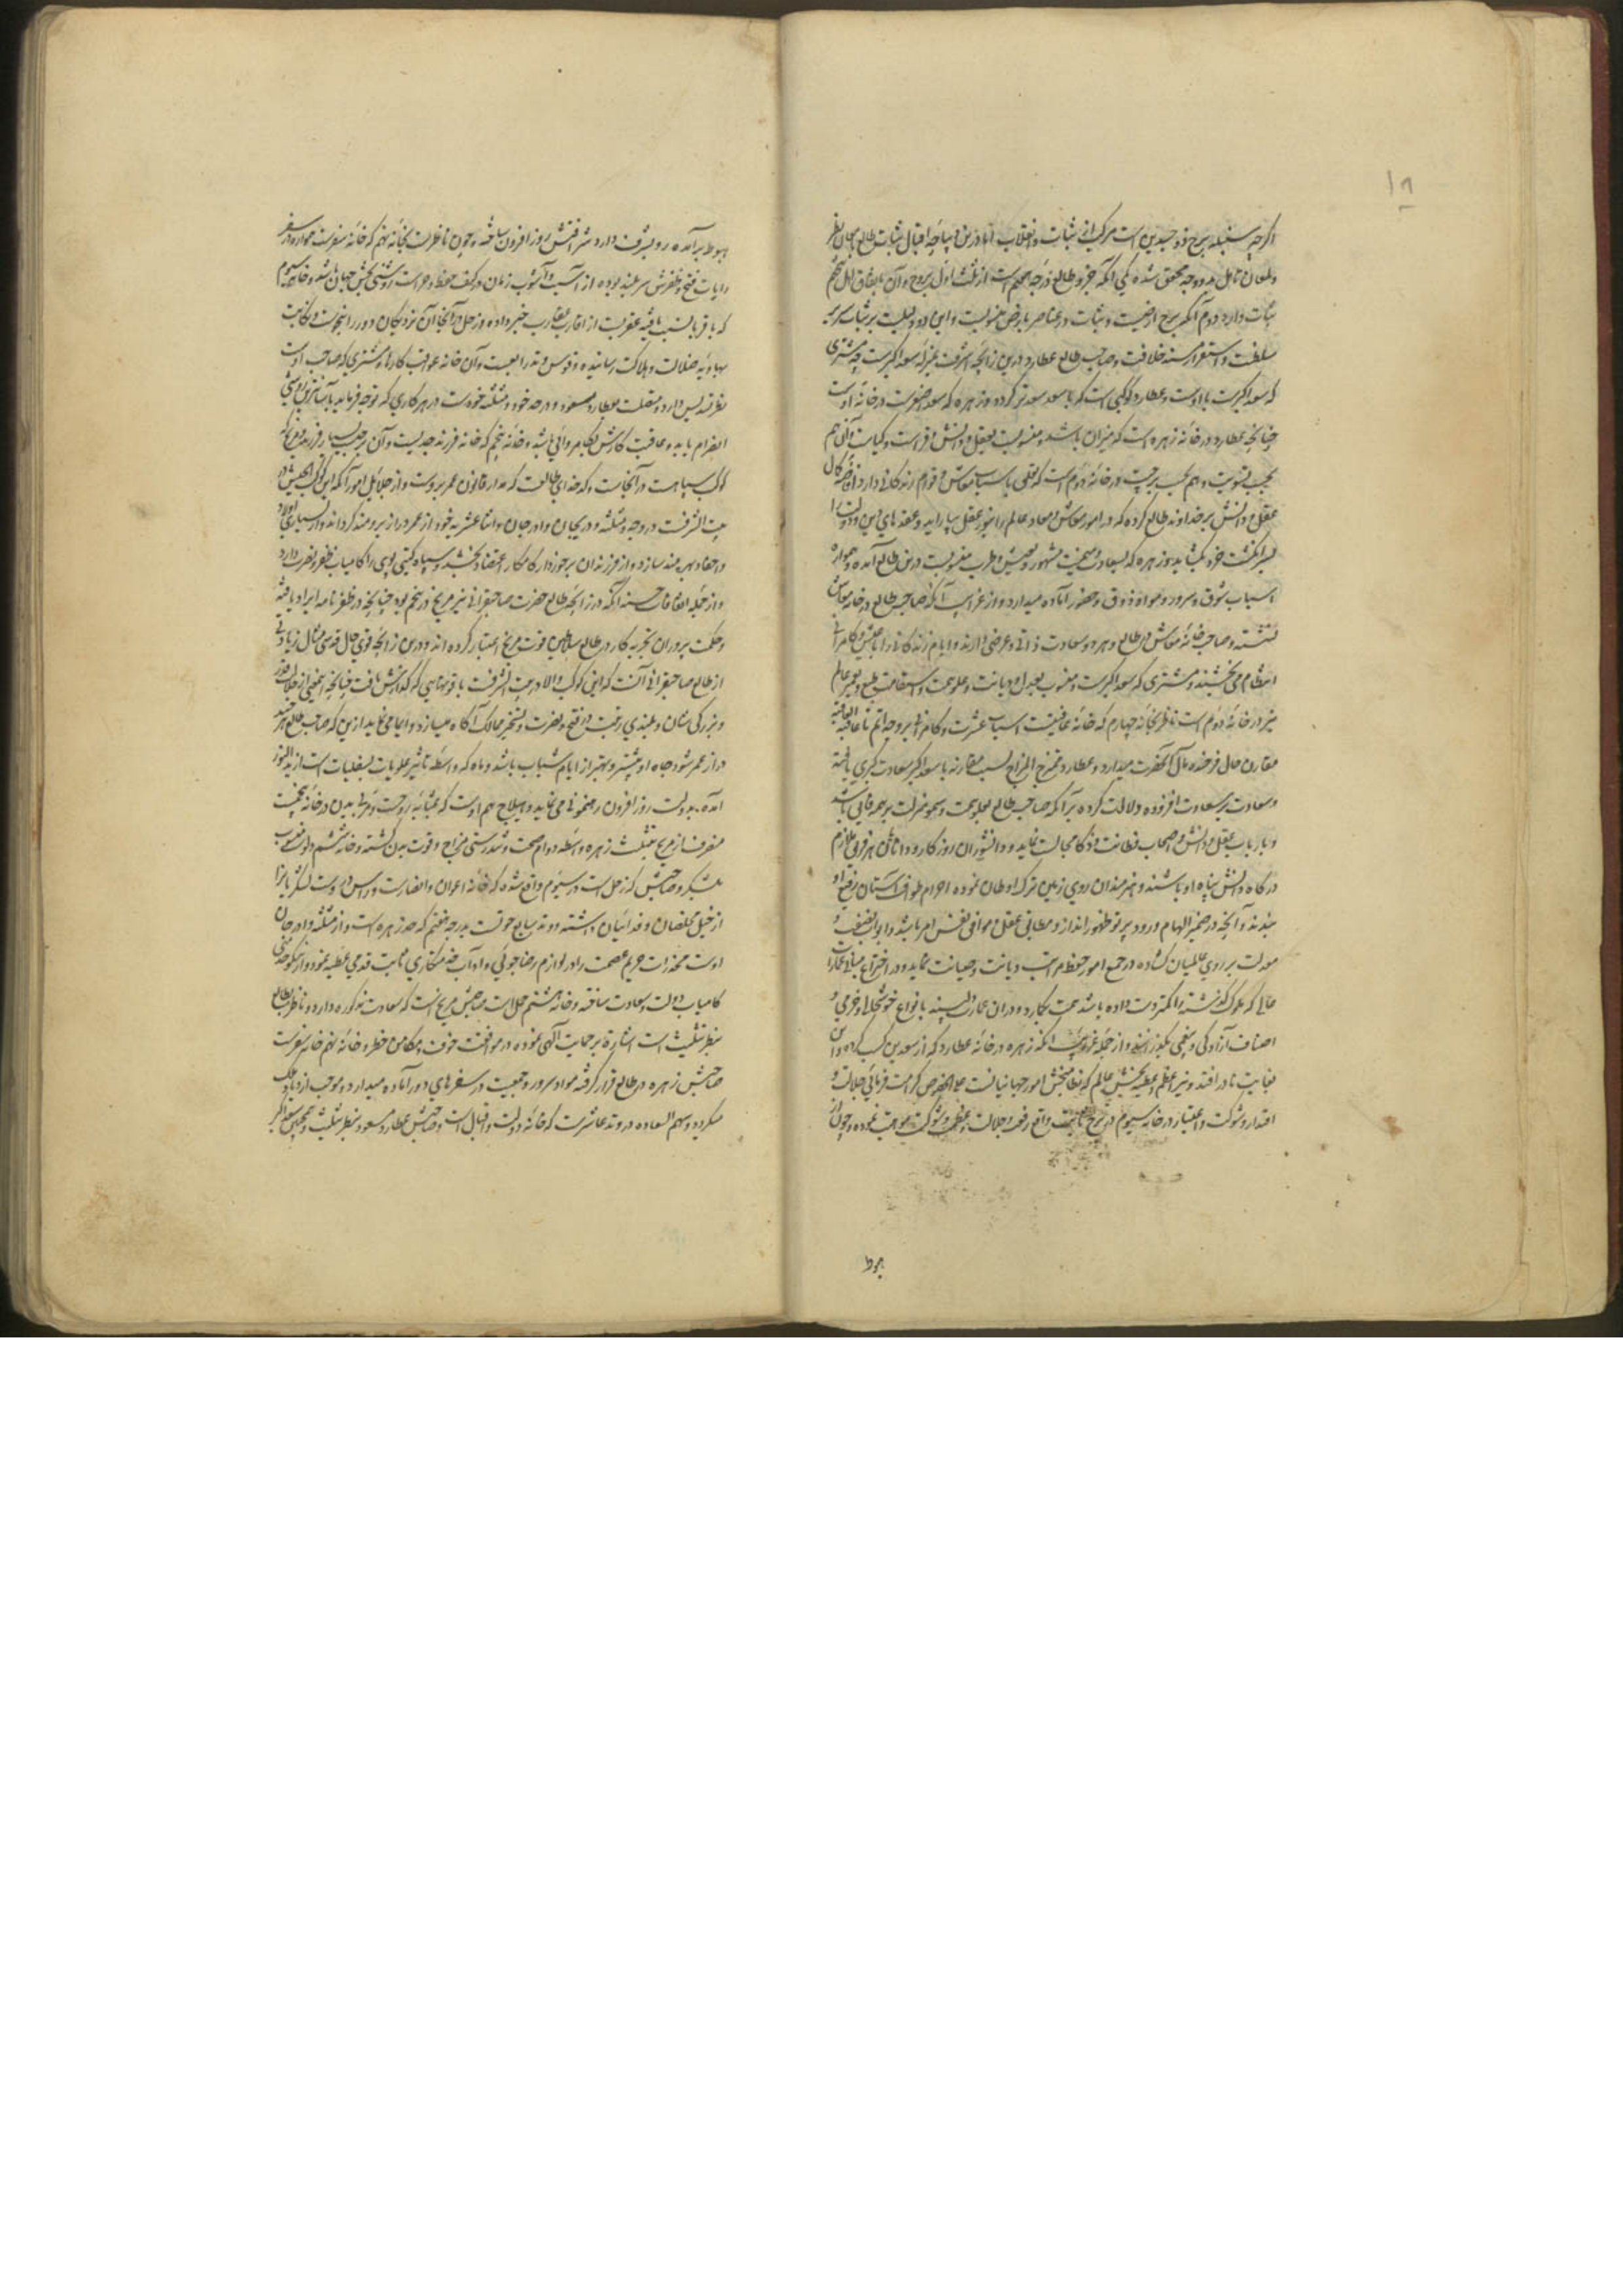 ۱۸
اگرچه سنبله برج ذو جسدین است مرکب از ثبات و انقلاب اما درین دیباچهٔ اقبال ثبات طالع بامعان نظر
و امعان تامل بدو وجه محقق شده یکی آنکه جزو طالع درجهٔ هفتم است از ثلث اول بروج و آن باتفاق اهل تنجیم
ثبات دارد دوم آنکه برج ارضیست و ثبات در عناصر بارض منسوبست و این دو دلیلست بر ثبات سریر
سلطنت و استقرار مسند خلافت و صاحب طالع عطارد درین زایچه اشرف بمنزله سعد اکبرست چه مشتری
که سعد اکبرست با اوست و عطارد کوکبی است که با سعد سعدتر کرده و زهره که سعد اصغرست در خانه اوست
چنانچه عطارد در خانه زهره است که میزان باشد و منسوبست بعقل و دانش و فراست و کیاست و آن هم
بحسب تسویت و هم بحسب برجیت در خانه دوم است که تعلق باسباب معاش و قوام زندگانی دارد افاضه کمال
عقل و دانش بر خداوند طالع کرده که در امور معاش و معاد عالم را بنور عقل بیاراید و عقدهای دین و دولت را
بسرانگشت خرد بگشاید و زهره که بسعادت و میمنت مشهور و بعیش و طرب منسوبست درین طالع آمده و همواره
اسباب شوق و سرور و مواد ذوق و حضور آماده میدارد و از غرایب آنکه صاحب طالع در خانه معاش
نشسته و صاحب خانه معاش در طالع و هر دو سعادت ذاتی و عرضی دارند و ایام زندگانی را بعیش و کامرانی
انتظام می بخشند و مشتری که سعد اکبرست و منسوب بعدل و دیانت و علو همت و استقامت طبع و تعمیر عالم
نیز در خانه دوم است ناظر بخانه چهارم که خانه عاقبت است اسباب عشرت و کامرانی بر وجه اتم تا عاقبة العاقبة
مقارن حال فرخنده مآل آنحضرت میدارد و عطارد ممتزج المزاج بسبب مقارنه با سعد اکبر سعادت کبری یافته
و سعادت بر سعادت افزوده دلالت کرده بر آنکه صاحب طالع بعلو همت و سمو منزلت بر همه فایق باشد
و با ارباب عقل و دانش و اصحاب فطانت و ذکا مجالست نماید و دانشوران روزگار و دانایان هر فن ملازم
درگاه دانش پناه او باشند و هنرمندان روی زمین ترک اوطان نموده احرام طواف آستان رفیع او
بندند و آنچه در ضمیر الهام ورود پرتو ظهور اندازد مطابق عقل و موافق نفس امر باشد و ابواب نصفت و
معدلت بر روی عالمیان گشاده در جمیع امور حفظ مراتب دیانت و صیانت نماید و در اختراع مبانی عمارات
عالی که ملوک گذشته را کمتر دست داده باشد همت بگمارد و دران عمارات دلپسند بانواع خوشحالی و خرمی و
اصناف آزادگی و بیغمی بگذراند و از جمله غرایب آنکه زهره در خانه عطارد که از سعدین کسب کرده و این
بغایت نادر افتد و نیر اعظم و عطیه بخش عالم که نظام بخش امور جهانیانست علی الخصوص کرامت فرمائی جلالت و
اقتدار و شوکت و اعتبار در خانه سیوم در برج ثابت واقع رفعت و جلالت و عظمت و شوکت موهبت نموده و چون از
هبوط
هبوط برآمده رو بشرف دارد شرافتش روز افزون ساخته و چون ناظرست بخانه نهم که خانه سفرست همواره در سفر
رایات فتح و ظفرش سربلند بوده از آسیب و آشوب زمان در کنف حفظ و حراست روشنی بخش جهان باشد و خانه سیوم
که باقربا نسبت یافته عقربست از اقارب بعقارب خبر داده و زحل در آنجا آن نزدیکان دور را بنحوست و نکایت
بهاویه ضلالت و هلاکت رسانیده و قوس وتد رابعست و آن خانه عواقب کارها و مشتری که صاحب اوست
نظر تسدیس دارد و متصلست بعطارد مسعود و در حد خود و مثلثه خودست در هر کاری که توجه فرماید بآسانترین روشی
انصرام یابد و عاقبت کارش بکامروائی باشد و خانه پنجم که خانه فرزند جدیست و آن برجیست بسیار فرزند و مریخ که
کوکب سپاهست در آنجاست و کدخدای طالعست که مدار قانون عمر بروست و از جلایل امور آنکه این کوکب الجیش در
بیت الشرفست در وجه و مثلثه و دریجان و آدرجان و اثنا عشریه خود از عمر دراز برومند گرداند و از بسیاری اولاد
و احفاد بهره مند سازد و از فرزندان برخوردار کامکار اعتضاد بخشد و سپاه گیتی پوی را کامیاب ظفر و نصرت دارد
و از جمله اتفاقات حسنه آنکه در زایچه طالع حضرت صاحبقرانی نیز مریخ در پنجم بود چنانچه در ظفرنامه ایراد یافته
و حکمت پروران تجربه کار در طالع سلاطین قوت مریخ اعتبار کرده اند و درین زایچه قوی حال قدسی مثال زیادتی
از طالع صاحبقرانی آنست که این کوکب والا در بیت الشرفست با قوتهایی که گذارش یافت چنانچه اینمعنی از جلالت قدر
و بزرگی شان و بلندی رتبت و فتح و نصرت و تسخیر ممالک آگاه میسازد و ایما می نماید ازین که صاحب طالع هر چند
دراز عمر شود جاه او بیشتر و بهتر از ایام شباب باشد و ماه که واسطه تاثیر علویات بسفلیات است زاید النور
آمده بدولت روز افزون رهنمونی می نماید و هیلاج هم اوست که بمثابه روحست و مربی بدن در خانه پنجمست
منصرف از مریخ بتثلیث زهره واسطه دوام صحت و تندرستی مزاج و قوت بدن گشته و خانه ششم دلو منسوب
بلشکر و صاحبش که زحل است در سیوم واقع شده که خانه اعوان و انصارست و راس در اوست لشکریانرا
از خیل مخلصان و فدائیان داشته و وتد سابع حوتست بدرجه هفتم که حد زهره است و از مثلثه و ادرجان
اوست مخدرات حریم عصمت را در لوازم رضاجوئی و آداب خدمتکاری ثابت قدمی عطیه نمود و از نیکو خدمتی
کامیاب دولت و سعادت ساخته و خانه هشتم حمل است صاحبش مریخ است که سعادت مذکوره دارد و ناظر بطالع
بنظر تثلیث است اشاره بر حمایت آلهی نموده در مواقفت خوف و مکامن خطر و خانه نهم خانه سفرست
صاحبش زهره در طالع قرار گرفته مواد سرور و جمعیت در سفرهای دور آماده میدارد و موجب ازدیاد ملک
میگردد و سهم السعاده در وتد عاشرست که خانه دولت و اقبال است و صاحبش عطارد مسعود بنظر تثلیث و همچنین سعد اکبر